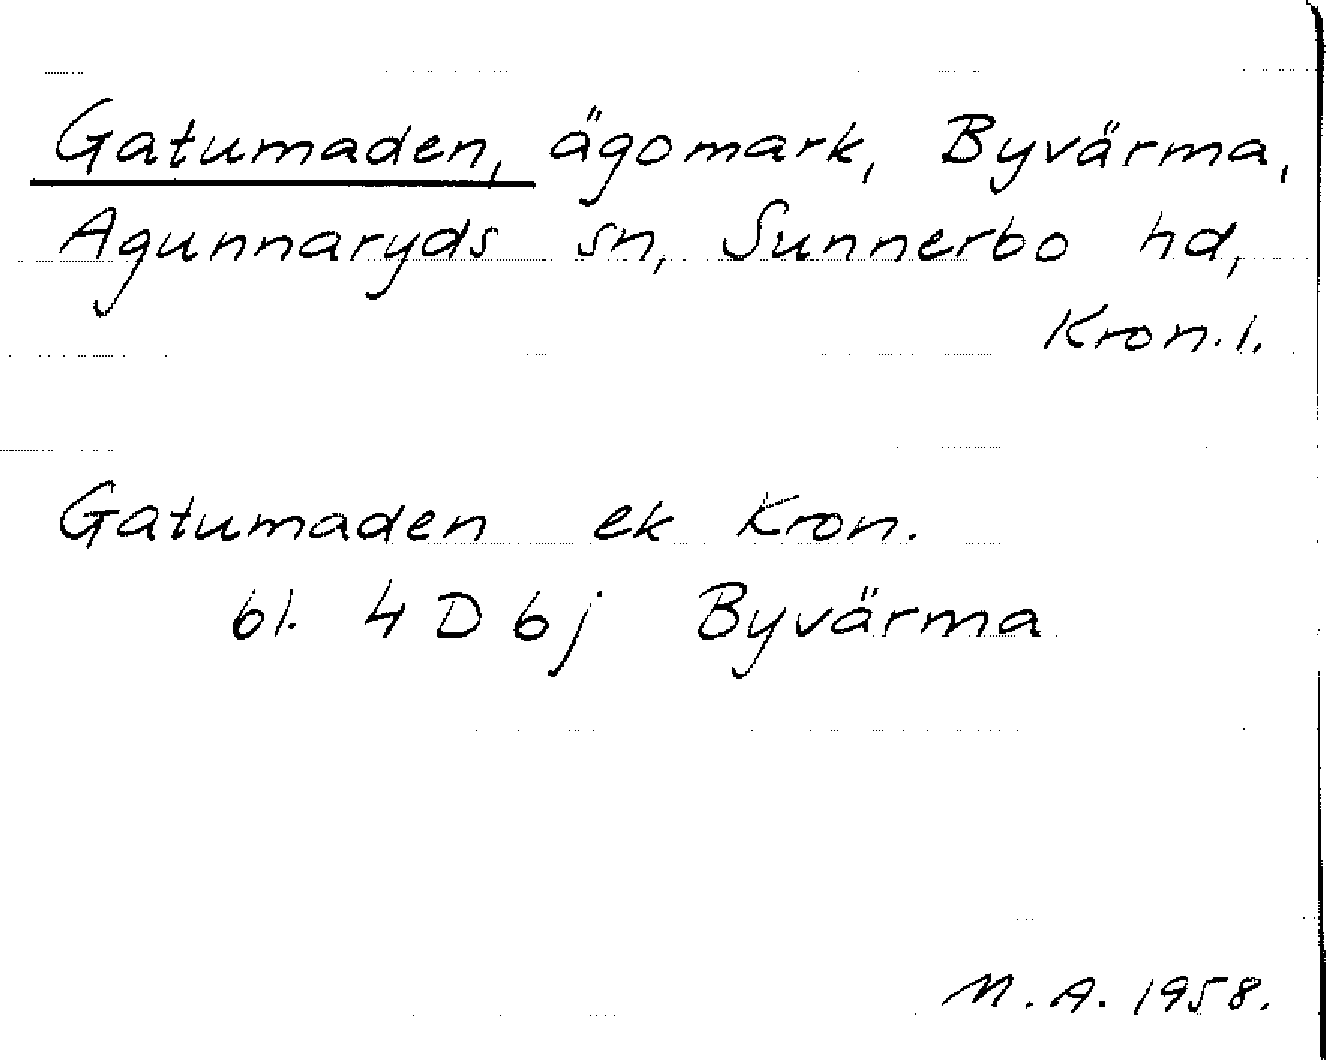 Gatumaden, ägomark, Byvärma,
Agunnaryds sn, Sunnerbo hd,
Kron.l.
Gatumaden ek Kron.
bl. 4 D 6j Byvärma
M.A. 1958.